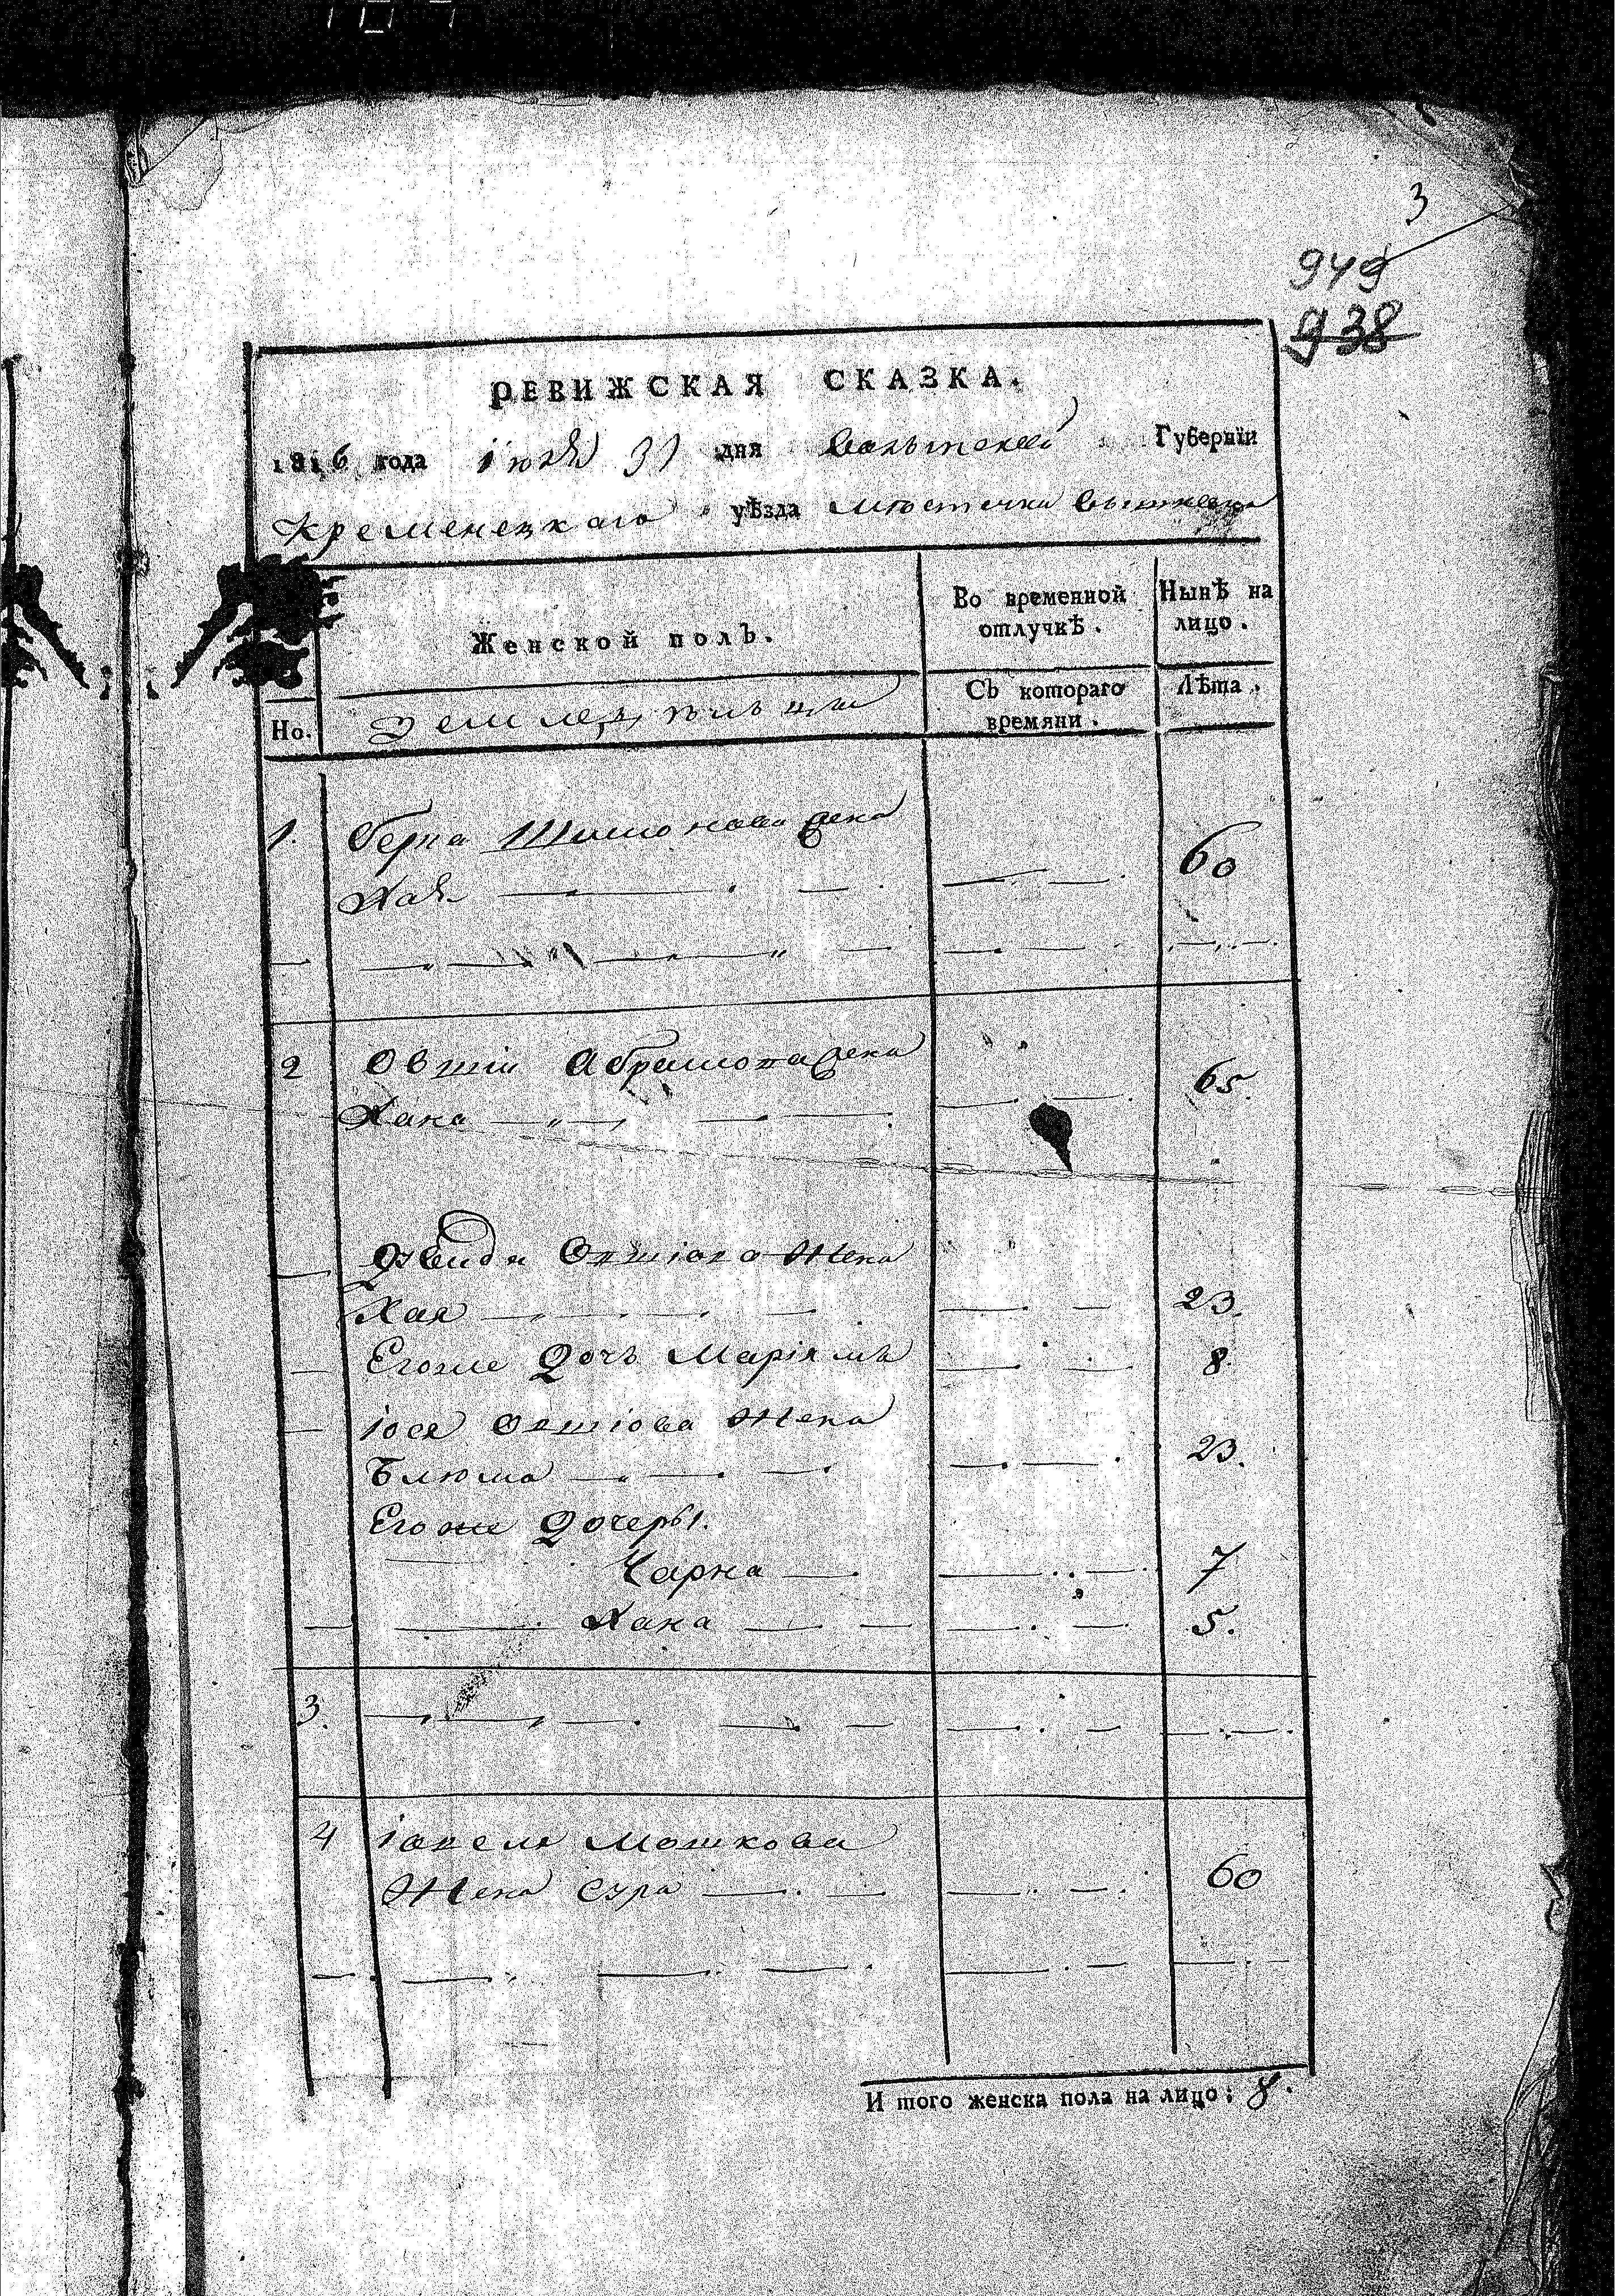 3
949
938
РЕВИЖСКАЯ СКАЗКА.
1816 года июля 31 дня Волынской Губернїи
Кременецкаго уѣзда местечка
Женской полъ.
Во временной отлучкѣ.
Нынѣ на лицо.
Но.
Земледѣльцы
Съ котораго времяни.
Лѣта.
1. Берка Шимонова жена
Хая 60
2 Овшiи Абрамова жена
Хана 65.
Овшiова Жена
Хая 23.
Егоже Дочь Марiямъ 8.
Iося Овшiова Жена
Блюма 23.
Егоже Дочеры.
Чарна 7
Хана 5.
3.
4 Мошкова
Жена Сура 60
И того женска пола на лицо: 8.